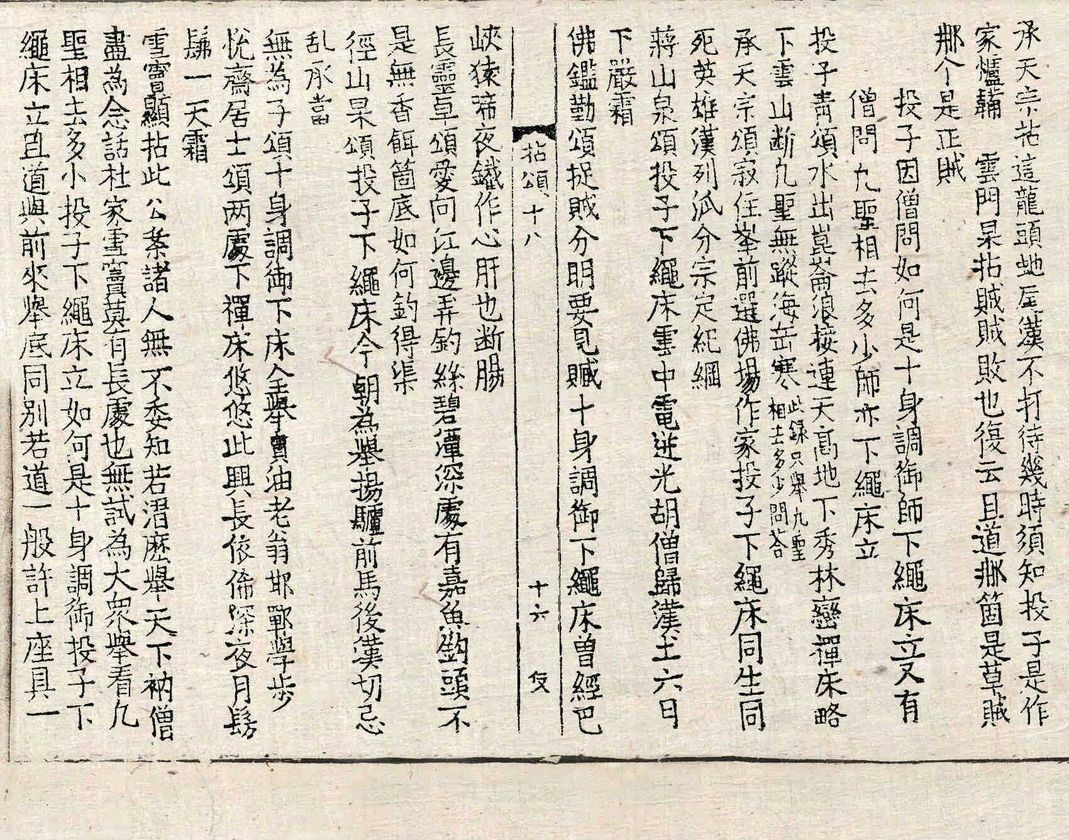 承天宗拈這龍頭虵尾漢不打待幾時須知投子是作
家爐鞴　雲門杲拈賊賊敗也復云且道那箇是草賊
那个是正賊
投子因僧問如何是十身調御師下繩床立又有
僧問九聖相去多少師亦下繩床立
投子青頌水出崑崙浪接連天高地下秀林巒禪床略
下雲山断九聖無蹤海岳寒此録只舉九聖相去多少問荅
承天宗頌寂住峯前選佛場作家投子下繩床同生同
死英雄漢列派分宗定紀綱
蔣山泉頌投子下繩床雲中電迸光胡僧歸漢土六月
下嚴霜
佛鑑勤頌捉賊分明要見贓十身調御下繩床曽經巴
拈頌十八　十六
峽猿啼夜鐵作心肝也断腸
長靈卓頌愛向江邊弄釣絲碧潭深處有嘉魚鈎頭不
是無香餌箇底如何釣得渠
徑山杲頌投子下繩床今朝為舉揚驢前馬後漢切忌
乱承當
無為子頌十身調御下床全舉賣油老翁邯鄲學步
悅齋居士頌两處下禪床悠悠此興長依俙深夜月髣
髴一天霜
雪竇顯拈此公案諸人無不委知若恁麽舉天下衲僧
盡為念話杜家雪竇莫有長處也無試為大衆舉看九
聖相去多小投子下繩床立如何是十身調御投子下
繩床立且道與前來舉底同別若道一般許上座具一